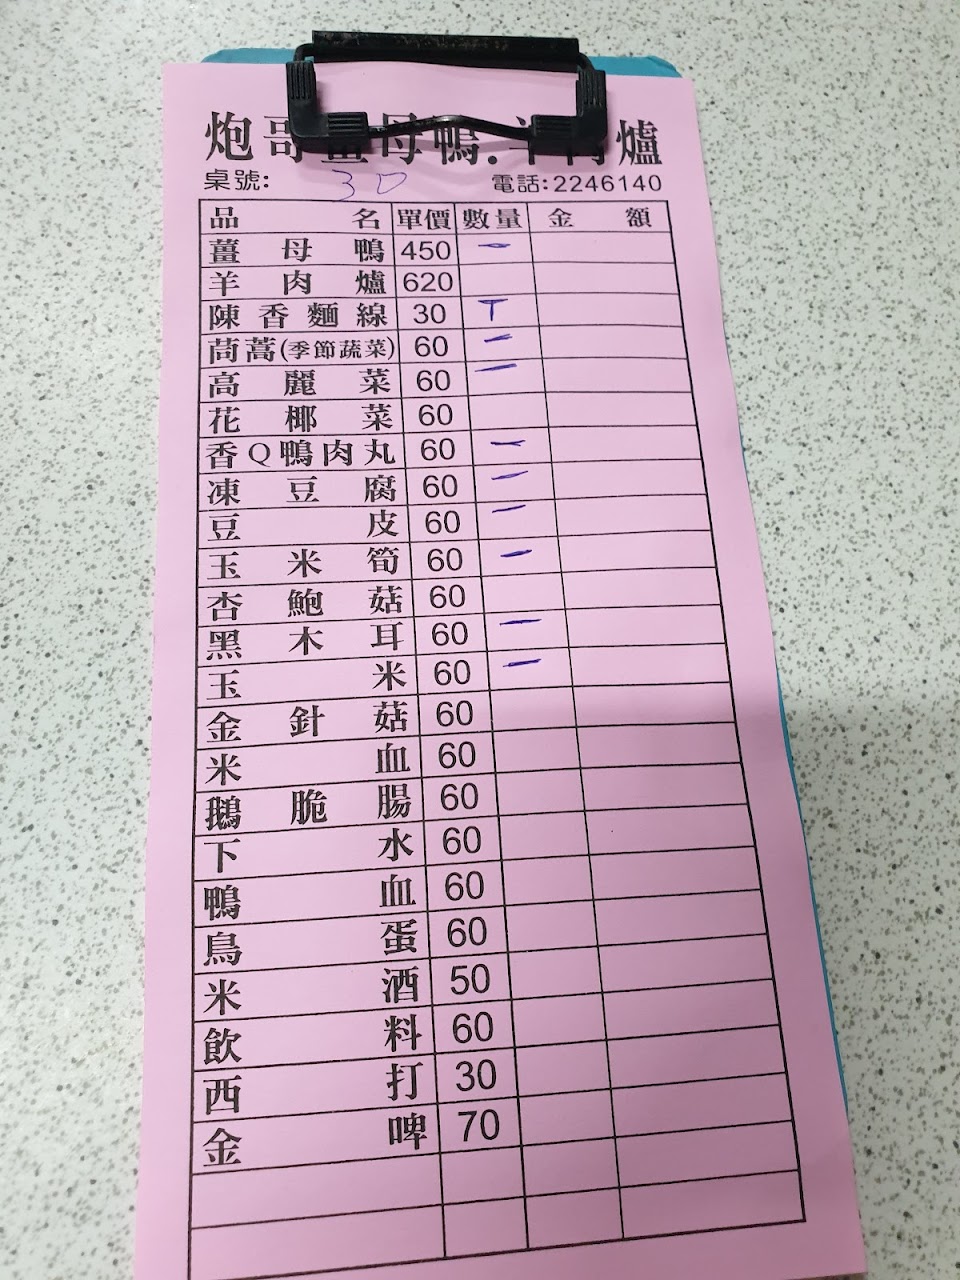 炮哥薑母鴨.羊肉爐
桌號: 30 電話:2246140
品名 單價 數量 金額
薑母鴨 450 一
羊肉爐 620
陳香麵線 30 T
茼蒿(季節蔬菜) 60 一
高麗菜 60 一
花椰菜 60
香Q鴨肉丸 60 一
凍豆腐 60 一
豆皮 60 一
玉米筍 60 一
杏鮑菇 60
黑木耳 60 一
玉米 60 一
金針菇 60
米血 60
鵝脆腸 60
下水 60
鴨血 60
鳥蛋 60
米酒 50
飲料 60
西打 30
金啤 70